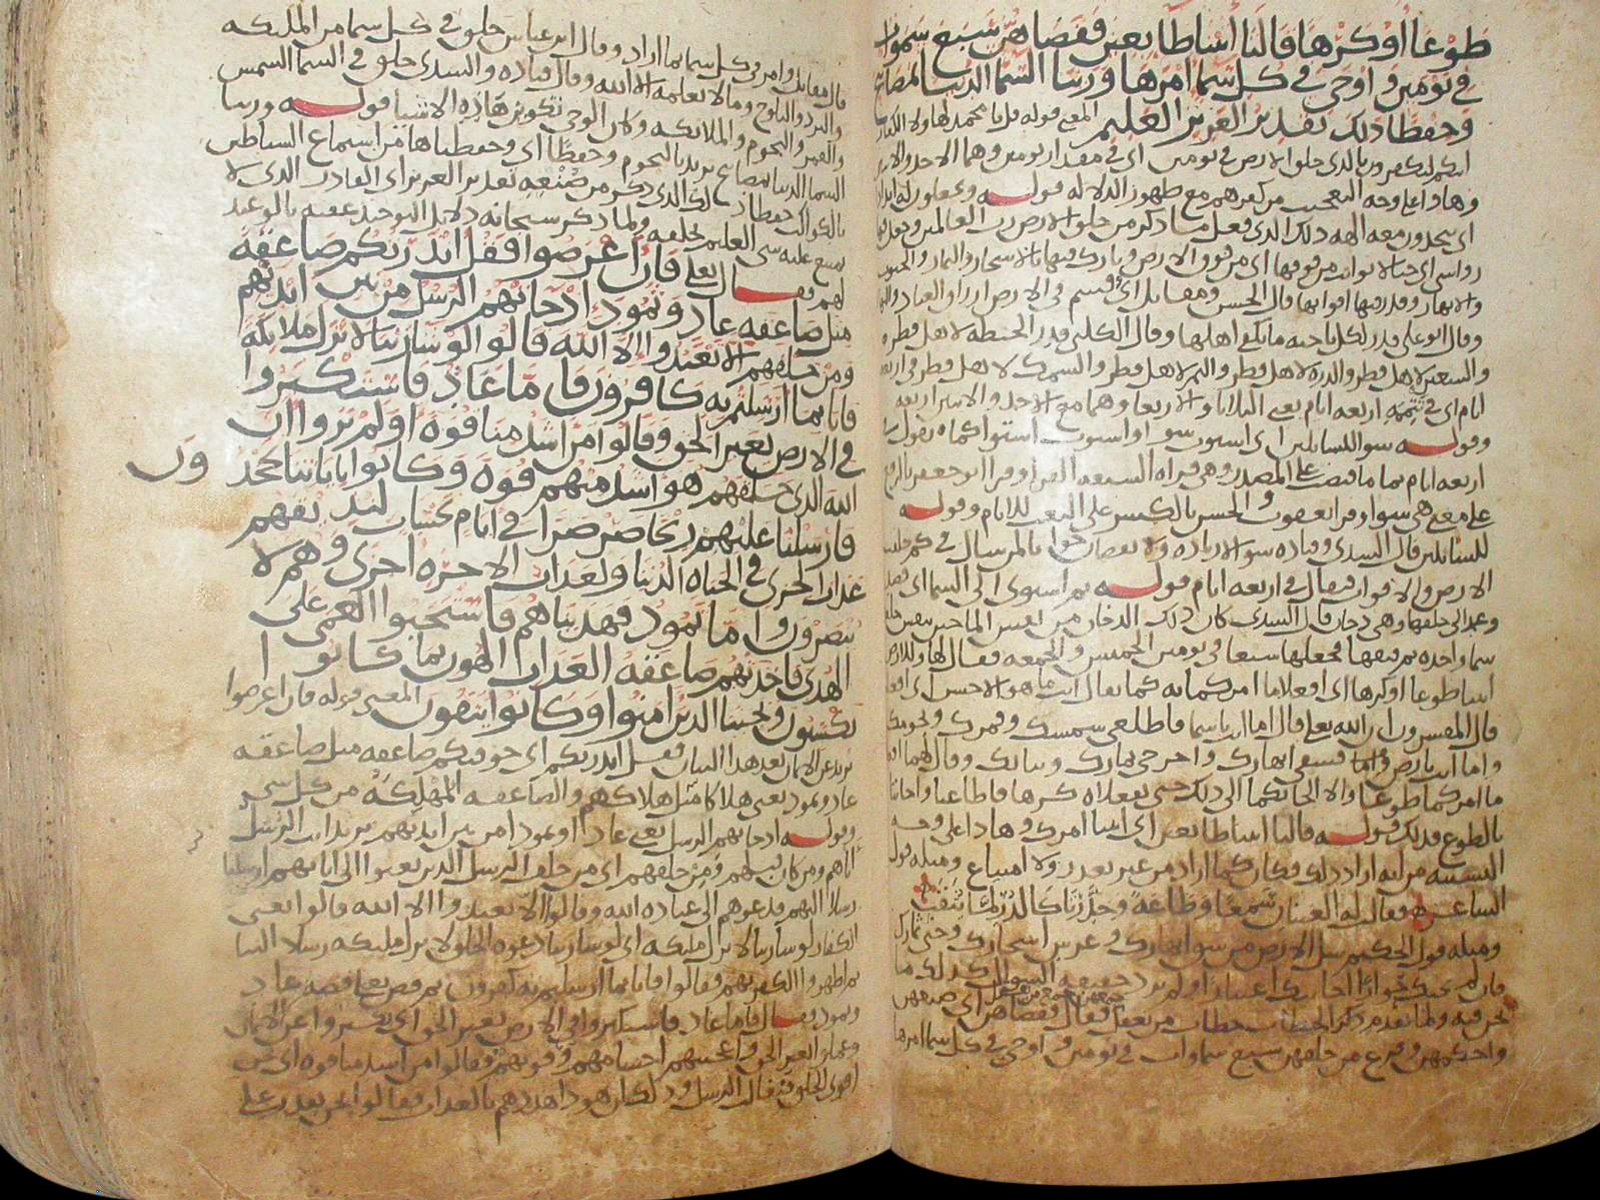 طوعا او كرها قالتا اتينا طائعين فقضاهن سبع سموات
في يومين و اوحى في كل سما امرها وزينا السما الدنيا بمصابيح
وحفظا ذلك تقدير العزيز العليم المعنى قوله قل يا محمد لهاولا الكفار
ائنكم لتكفرون بالذي خلق الارض في يومين اي في مقدار يومين وهما الاحد والاثنين
وهاذا على وجه التعجب من كفرهم مع ظهور الدلاله قوله وتجعلون له اندادا
ذلك الذي فعل ما ذكر من خلق الارض رب العالمين وجعل فيها
رواسي اي جبالا ثوابت من فوقها اي من فوق الارض وبارك فيها بالاشجار والثمار والحبوب
والانهار وقدر فيها اقواتها قال الحسن ومقاتل اي قسم في الارض ارزاق العباد والبهائم
وقال ابو علي قدر لكل ناحيه ما يكفي اهلها وقال الكلبي قدر الحنطه لاهل قطر
والتمر لاهل قطر والذره لاهل قطر والسمك لاهل قطر في اربعة
ايام اي في تتمه اربعه ايام يعني الثلاثا والاربعا وهما مع الاحد والاثنين اربعه
وقوله سوا للسائلين اي استوت سوا او استوت استوا كما تقول في
اربعه ايام تماما فنصب على المصدر وهي قراه السبعه القرا وقرا ابو جعفر بالرفع
على معنى هي سوا وقرا يعقوب والحسن بالكسر على النعت للايام وقوله
للسائلين قال السدي وقتاده سوا لا زياده ولا نقصان جوابا لمن سال في كم خلقت
الارض والاقوات فقال في اربعه ايام قوله ثم استوى الى السما اي قصد
وعمد الى خلقها وهي دخان قال السدي كان ذلك الدخان من نفس الما حين تنفس
سما واحده ثم فتقها فجعلها سبعا في يومين الخميس والجمعه فقال لها وللارض
ائتيا طوعا او كرها اي افعلا ما امركما به كما يقال ائت ما هو الاحسن اي افعل
قال المفسرون ان الله تعالى قال اما انت يا سما فاطلعي شمسك وقمرك ونجومك
واما انت يا ارض فشقي انهارك واخرجي ثمارك ونباتك وقال لهما افعلا
ما امركما طوعا والا الجاتكما الى ذلك حتى تفعلاه كرها فاطاعتا واجابتا
بالطوع فذلك قوله قالتا اتينا طائعين اي اتينا امرك وهاذا على وجه
التشبيه من انه اراد ذلك فكان كما اراد من غير تعذر ولا امتناع ومثله قول
الشاعر فقالت له العينان سمعا وطاعة وحدرتا كالدر لما يثقب
ومثله قول الحكيم سل الارض من شق انهارك وغرس اشجارك وجنى ثمارك
فان لم تجبك حوارا اجابتك اعتبارا ولم يرد حقيقه السوال كذلك ما
نحن فيه ولما تقدم ذكر الخطاب خطاب من يعقل فقال فقضاهن اي صنعهن
واحكمهن وفرغ من خلقهن سبع سماوات في يومين و اوحى في كل سما امرها
قال مقاتل وامر في كل سما بما اراد وقال ابن عباس خلق في كل سما من الملائكه
والبرد والثلوج وما لا يعلمه الا الله وقال قتاده والسدي خلق في السما الشمس
والقمر والنجوم والملائكه وكان الوحي تكوين هاذه الاشيا قوله وزينا
السما الدنيا بمصابيح يريد بالنجوم وحفظا اي وحفظناها من استماع الشياطين
بالكواكب حفظا ذلك الذي ذكر من صنعه تقدير العزيز اي القادر الذي لا
يمتنع عليه شي العليم بخلقه ولما ذكر سبحانه دلائل التوحيد عقبه بالوعيد
لهم فقال تعلى فان اعرضوا فقل انذرتكم صاعقه
مثل صاعقه عاد وثمود اذ جاتهم الرسل من بين ايديهم
ومن خلفهم الا تعبدوا الا الله قالوا لو شا ربنا لانزل ملايكه
فانا بما ارسلتم به كافرون فاما عاد فاستكبروا
في الارض بغير الحق وقالوا من اشد منا قوة اولم يروا ان
الله الذي خلقهم هو اشد منهم قوة وكانوا باياتنا يجحدون
فارسلنا عليهم ريحا صرصرا في ايام نحسات لنذيقهم
عذاب الخزي في الحياه الدنيا ولعذاب الاخره اخزى وهم لا
ينصرون واما ثمود فهديناهم فاستحبوا العمى على
الهدى فاخذتهم صاعقه العذاب الهون بما كانوا
يكسبون ونجينا الذين امنوا وكانوا يتقون المعنى قوله فان اعرضوا
يريد عن الايمان بعد هذا البيان فقل انذرتكم اي خوفتكم صاعقه مثل صاعقه
عاد وثمود يعني هلاكا مثل هلاكهم والصاعقه المهلكة من كل شي
وقوله اذ جاتهم الرسل يعني عادا وثمود من بين ايديهم يريد الرسل
اباهم ومن كان قبلهم ومن خلفهم اي من خلف الرسل الذين بعثوا الى ابايهم ارسلنا
رسلا اليهم فدعوهم الى عباده الله وقالوا الا تعبدوا الا الله قالوا يعني
الكفار لو شا ربنا لانزل ملايكه اي لو شا ربنا دعوه الخلق لانزل ملايكه رسلا الينا
ثم اظهروا الكفر بهم فقالوا فانا بما ارسلتم به كافرون ثم قص تعلى قصه عاد
وثمود فقال فاما عاد فاستكبروا في الارض بغير الحق اي تكبروا عن الايمان
وعملوا بغير الحق واعجبتهم اجسامهم وقوتهم فقالوا من اشد منا قوه اي نحن
اقوى الخلق قوه قال الرسل وذلك ان هودا هددهم بالعذاب فقالوا نحن نقدر على